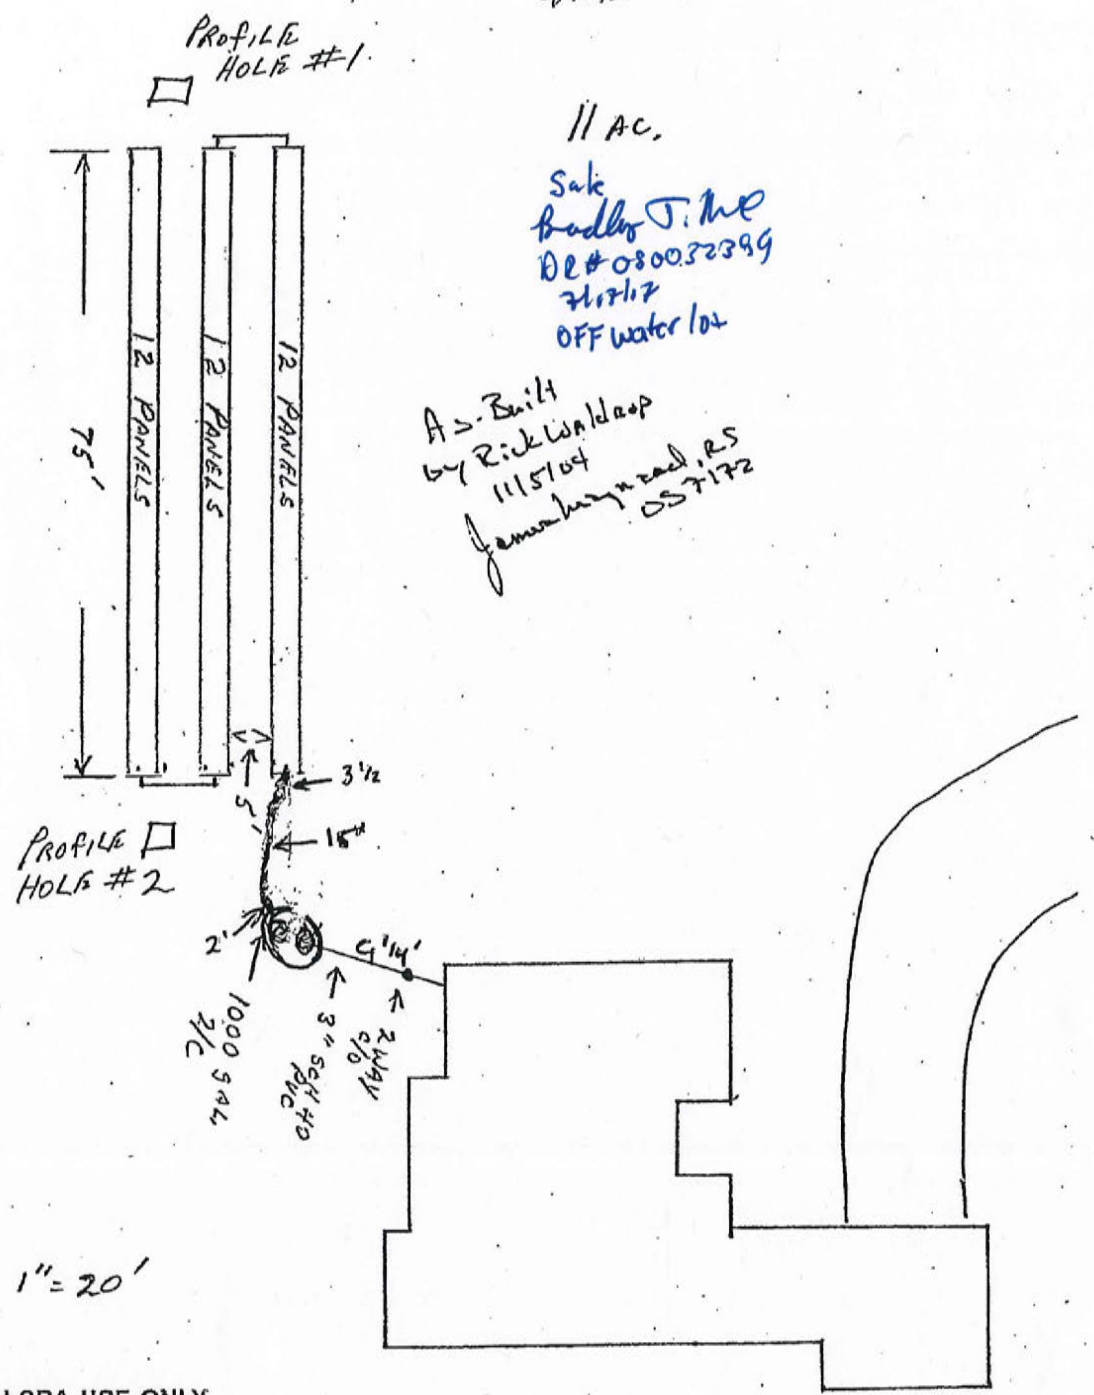 PROFILE
HOLE #1
11 AC.
Sale
Bradley T.
DR# 080032399
7/17/17
OFF water lot
As-Built
by Rick Waldrop
11/5/04
RS
OS7172
12 PANELS
12 PANELS
12 PANELS
75'
3 1/2
5'
18"
PROFILE
HOLE #2
2'
14'
1000 GAL
2/C
3" SCH 40
PVC
2 WAY
C/O
1"=20'
USE ONLY